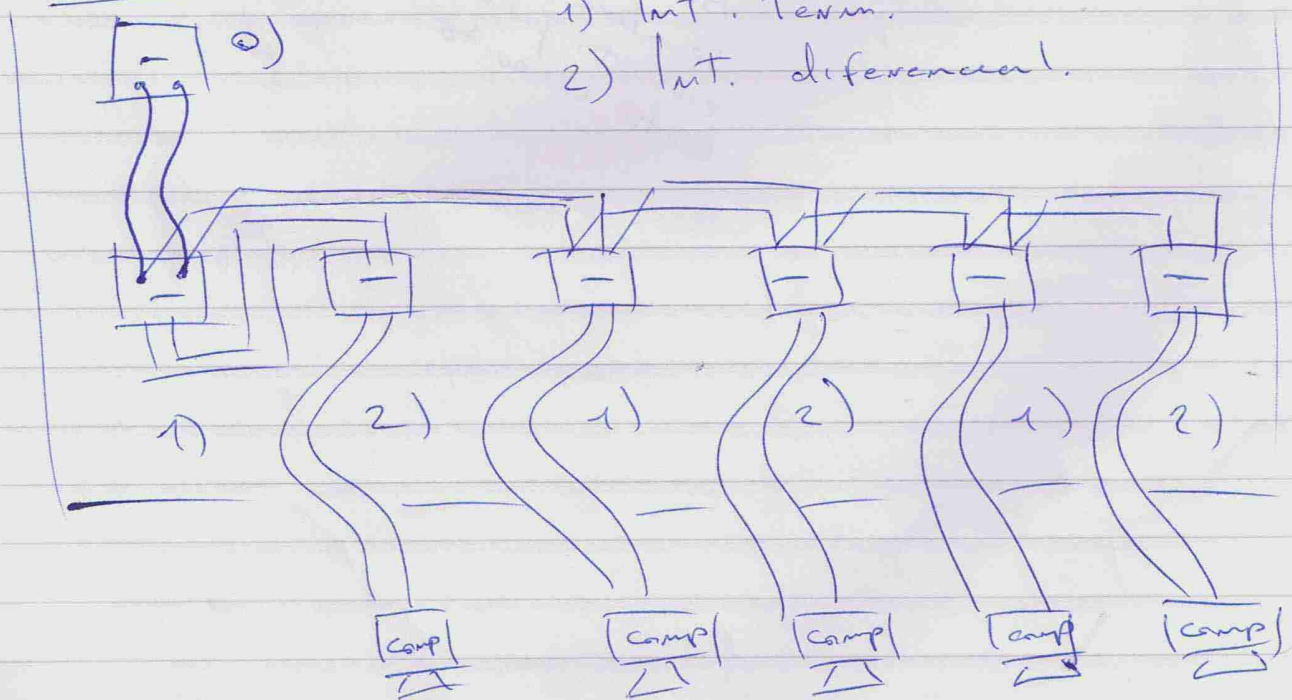 0)
1) Int. Term.
2) Int. diferencial.
1)
2)
1)
2)
1)
2)
comp
comp
comp
comp
comp